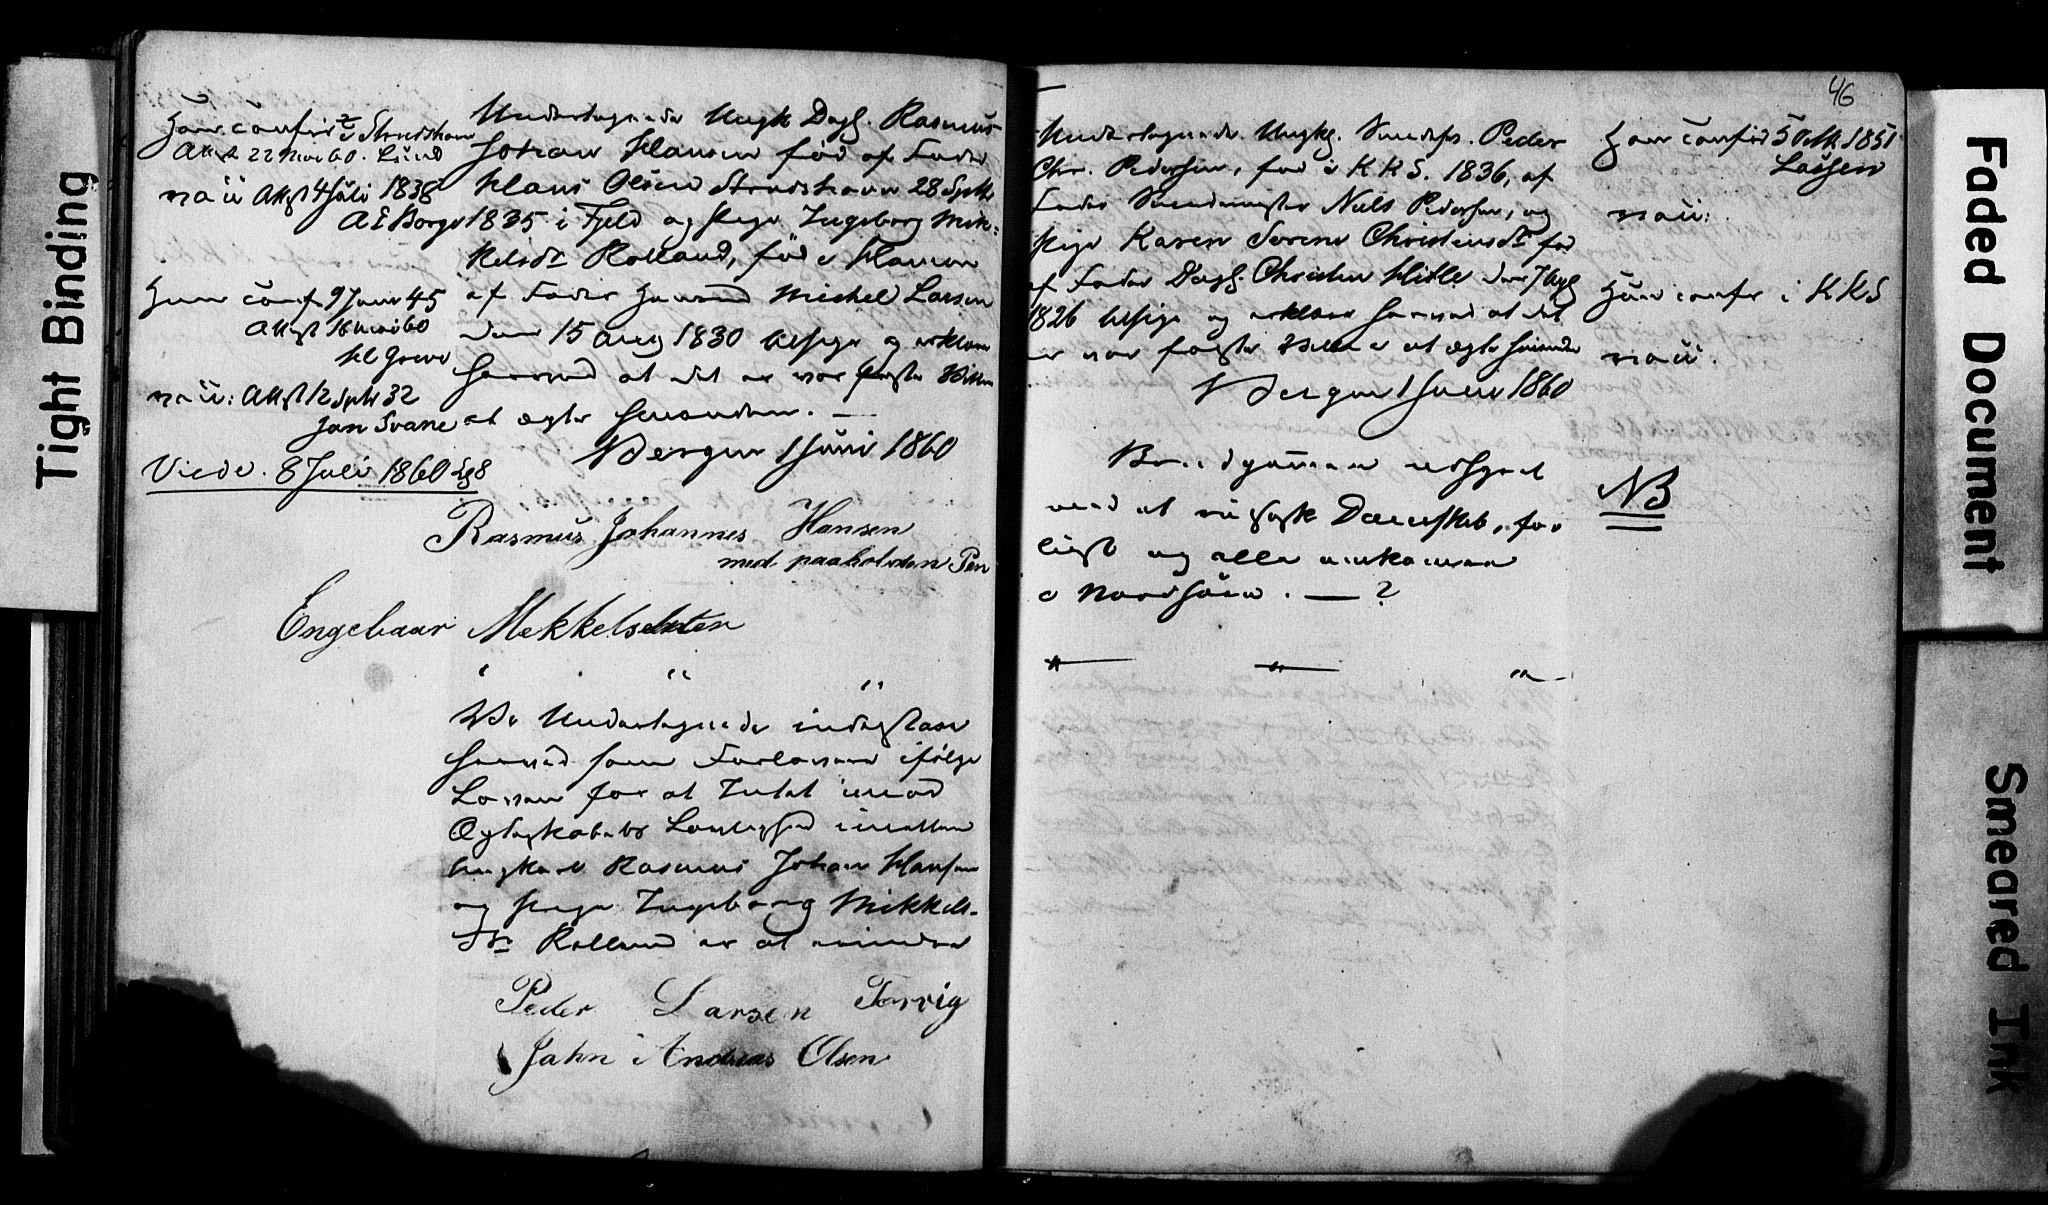 Tight Binding
Han confir i Strudshavn
Attest 22 Mai 60. Lund
nat: Attest 4 Juli 1838
A E Borge
Hun conf 9 Janr 45
Attest 16 Mai 60
Kl Greve
nat: Attest 12 Septr 32
Jan Svane
Viede. 8 Juli 1860
Undertegnede Ungk Dagl. Rasmus
Johan Hansen fød af Fader
Hans Olsen Strudshavn 28 Septbr
1835 i Fjeld og Pige Ingeborg Mik=
kelsdr Rolland, fød i Hammer
af Fader Huusmd Michel Larsen
den 15 aug 1830 tilsige og erklære
herved at det er vor faste Villie
at ægte hinanden. —
Bergen 1 Juni 1860
Rasmus Johannes Hansen
med paaholden Pen
Engebaar Mekkelsdatter
Vi Undertegnede indestaae
herved som Forlovere ifølge
Loven for at Intet imod
Ægteskabets Lovlighed imellem
Ungkarl Rasmus Johan Hansen
og Pige Ingeborg Mikkels-
dr Rolland er at erindre
Peder Larsen Torvig
Jahn Andreas Olsen
46
Undertegnede Ungkl. Peder
Chr. Pedersen, fød i K K S. 1836, af
Fader Niels Pedersen, og
Pige Karen Serene Christensdr fød
af Fader Dagl. Christen Hille den 7
1826 tilsige og erklære herved at det
er vor faste Villie at ægte hinanden
Bergen 1 Juni 1860
Brudgommen udgaaet
med et Dampskib, for-
liist og alle omkomne
i Nordsöen. — ?
Han confir 5 Octb 1851
Lassen
nat:
Hun confr i K K S
nat:
NB
Faded Document
Smeared Ink